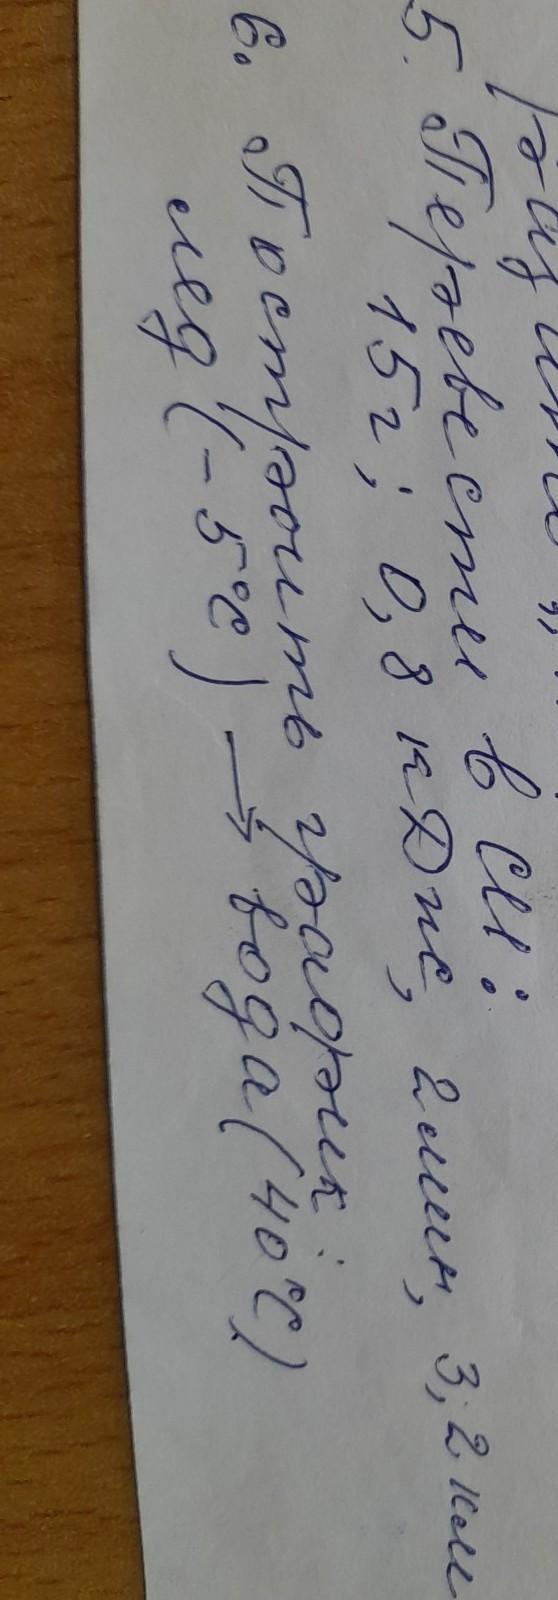 5. Перевести в СИ:
15 г; 0,8 кДж, 2 мин, 3,2 км
6. Построить график:
лед (-5°С) → вода (40°С)